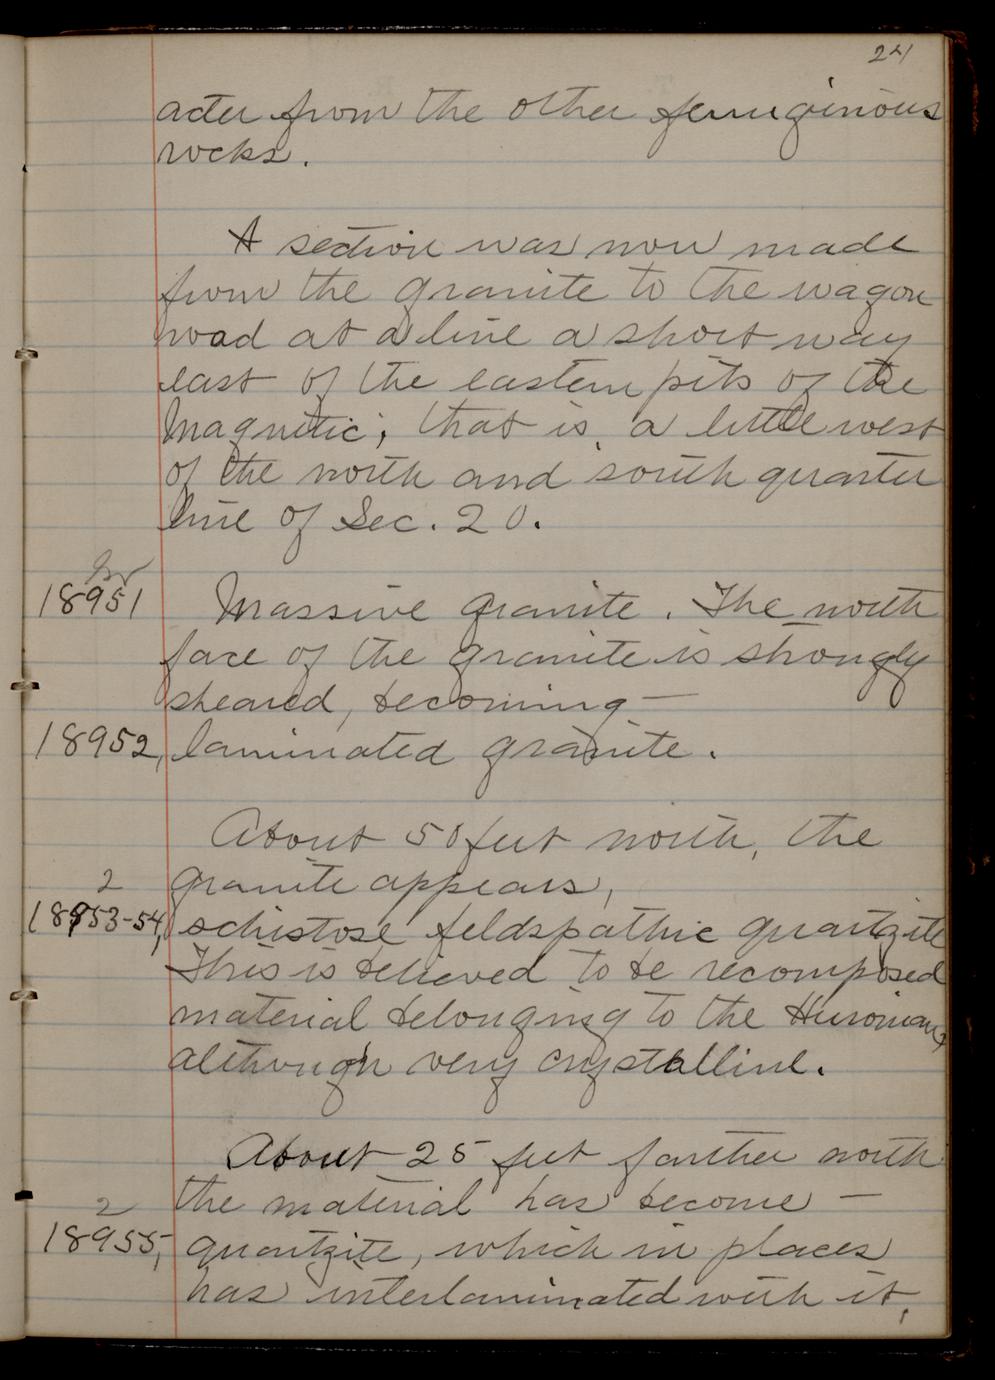 24
acter from the other ferruginous
rocks.
A section was now made
from the granite to the wagon
road at a line a short way
east of the eastern pits of the
Magnetic; that is, a little west
of the north and south quarter
line of Sec. 20.
18951 Massive granite. The north
face of the granite is strongly
sheared, becoming—
18952, laminated granite.
About 50 feet north, the
2 granite appears,
18953-54, schistose feldspathic quartzite
This is believed to be recomposed
material belonging to the Huronian,
although very crystalline.
About 25 feet farther north
2 the material has become—
18955, quartzite, which in places
has interlaminated with it,